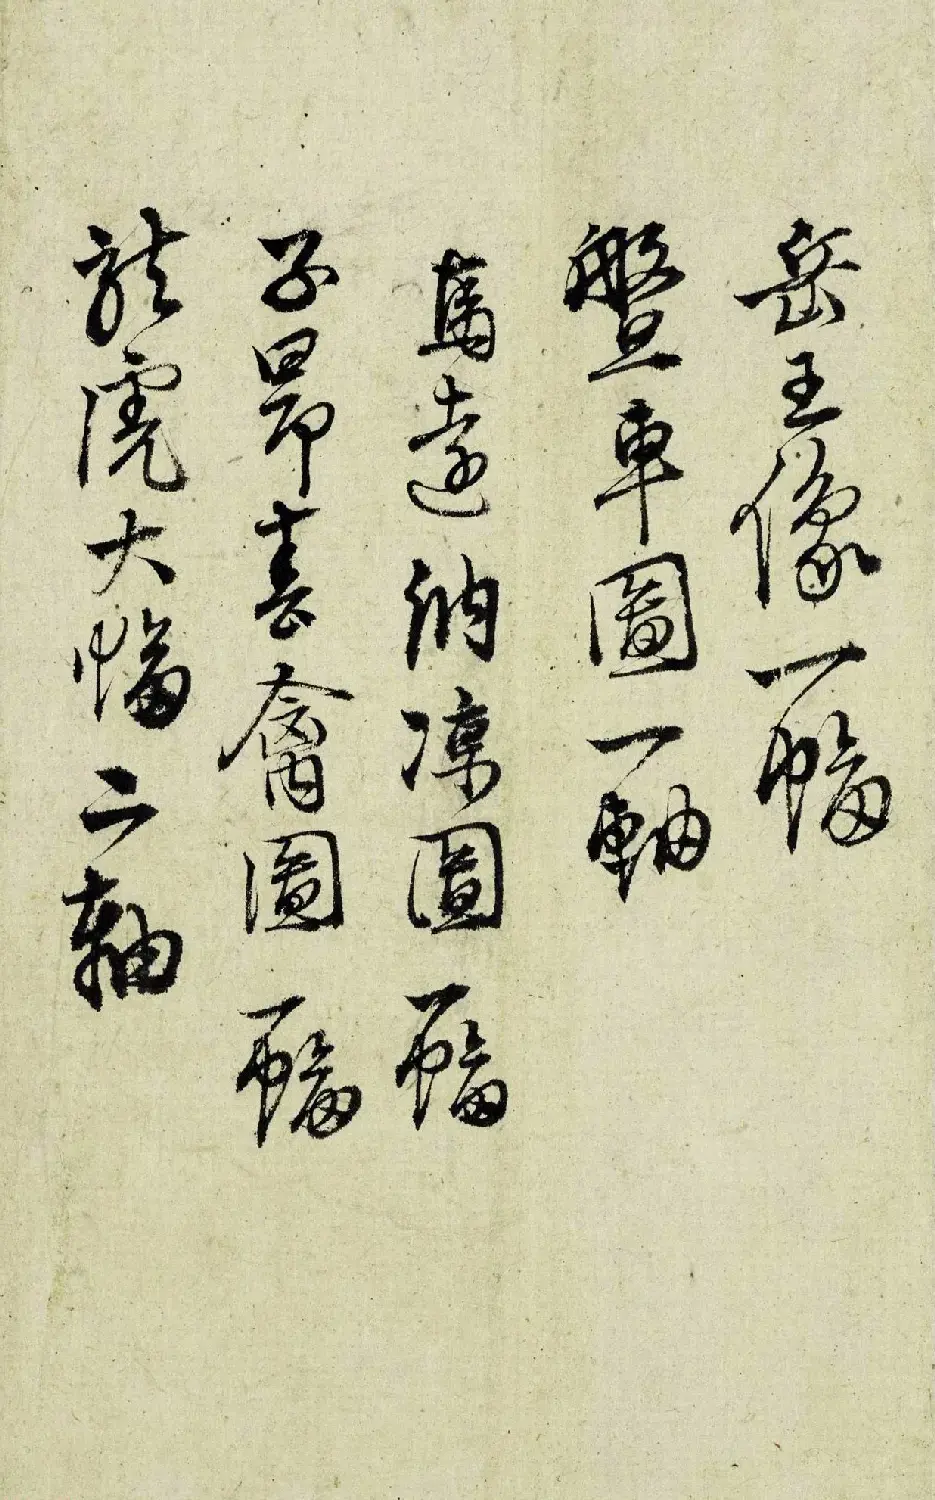 岳王像一幅
盤車圖一軸
馬遠納凉圖一幅
子昂喜禽圖一幅
龍虎大幅二軸